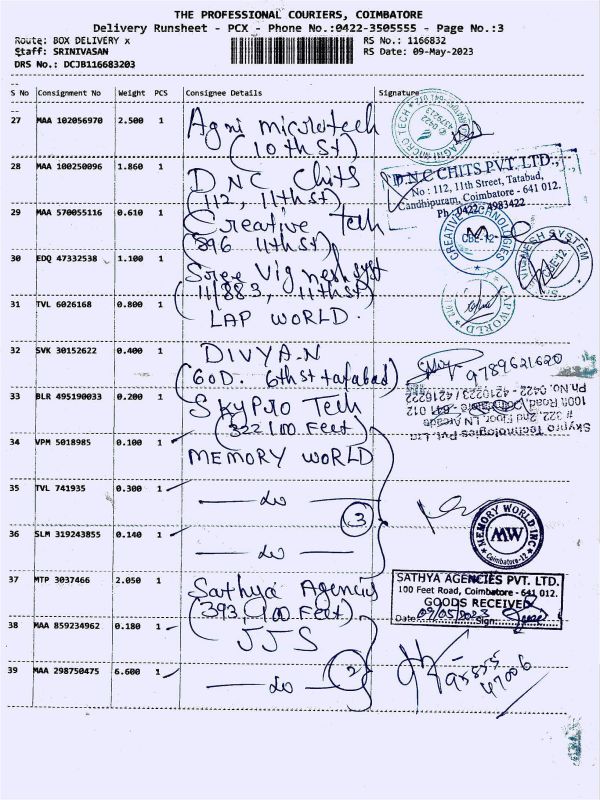 THE PROFESSIONAL COURIERS, COIMBATORE
Delivery Runsheet - PCX - Phone No.:0422-3505555 - Page No.:3
Route: BOX DELIVERY x
RS No.: 1166832
Staff: SRINIVASAN
RS Date: 09-May-2023
DRS No.: DCJB116683203
S No Consignment No Weight PCS Consignee Details Signature
27 MAA 102056970 2.500 1 Agni microtech
(10th St)
AGNI MICRO TECH
28 MAA 100250096 1.860 1 DNC Chits
(112, 11th St)
D.N.C CHITS PVT. LTD.,
No : 112, 11th Street, Tatabad,
Gandhipuram, Coimbatore - 641 012.
Ph : 0422 - 4983422
29 MAA 570055116 0.610 1 Creative Tech
(896 11th St)
CREATIVE TECHNOLOGIES
CBE-12
30 EDQ 47332538 1.100 1 Sree Vignesh syst
(11/883, 11th St)
VIGNESH SYSTEM
CBE-12
31 TVL 6026168 0.800 1 LAP WORLD.
LAP WORLD
32 SVK 30152622 0.400 1 DIVYA.N
(60D. 6th St tatabad)
9789621620
33 BLR 495190033 0.200 1 Skypro Tech
(322 100 Feet)
Skypro Technologies Pvt. Ltd
# 322, 2nd Floor, LN Arcade
100ft Road, Coimbatore - 641 012
Ph No. 0422 - 4210223 / 4216222
34 VPM 5018985 0.100 1 MEMORY WORLD
35 TVL 741935 0.300 1 — do —
3
36 SLM 319243855 0.140 1 — do —
MEMORY WORLD INC
MW
Coimbatore-12
37 MTP 3037466 2.050 1 Sathya Agencies
(393, 100 Feet)
SATHYA AGENCIES PVT. LTD.
100 Feet Road, Coimbatore - 641 012.
GOODS RECEIVED
Date: 09/05/2023 Sign:
38 MAA 859234962 0.180 1 JJS
39 MAA 298750475 6.600 1 — do —
2
95855
47006